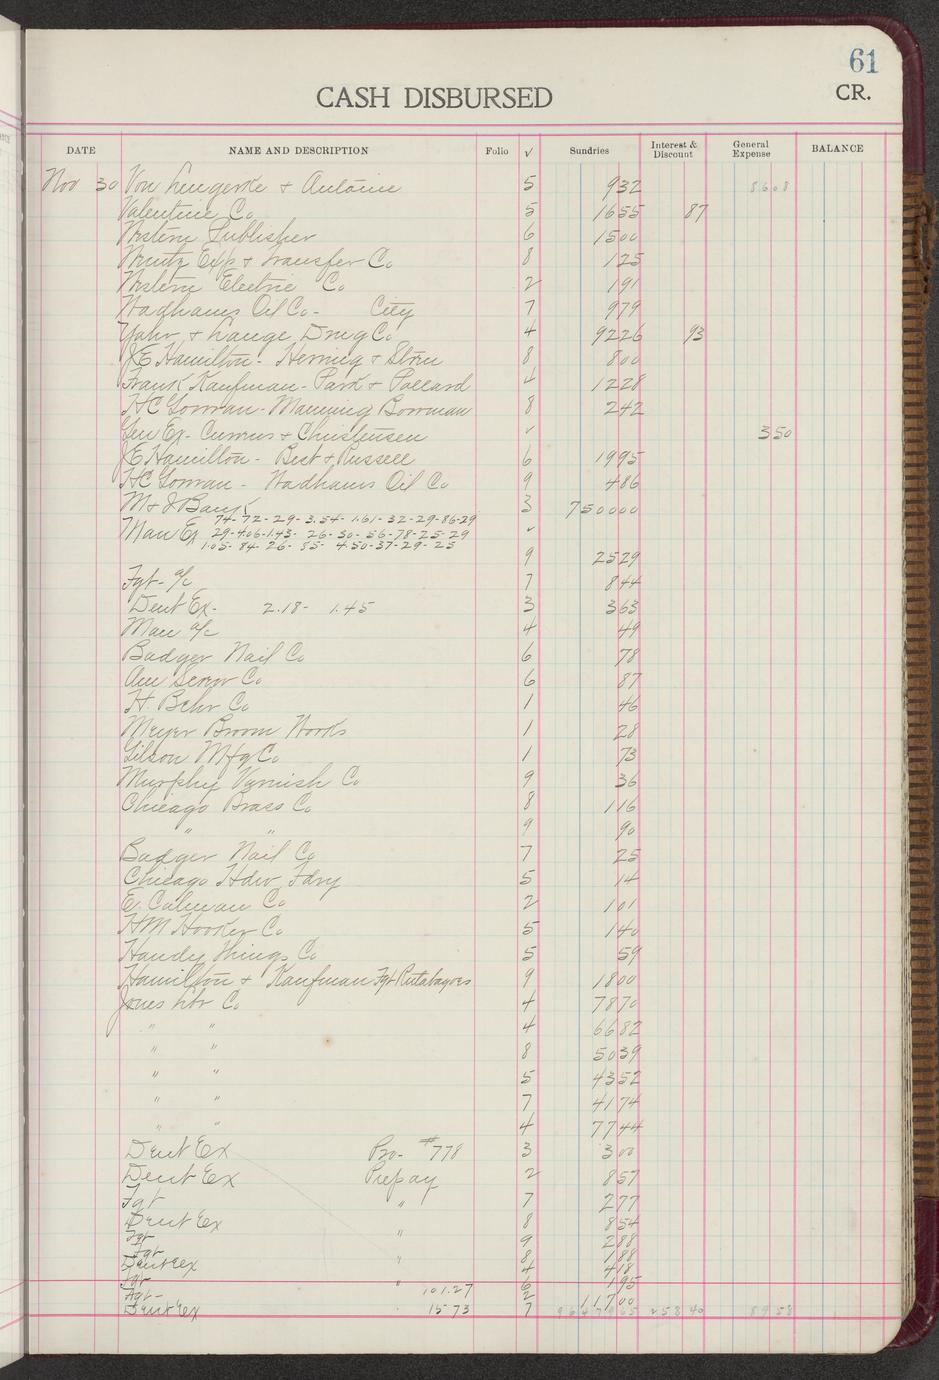 61
CASH DISBURSED
CR.
DATE NAME AND DESCRIPTION Folio √ Sundries Interest & Discount General Expense BALANCE
Nov 30 Von Lengerke & Antoine 5 932 8608
Valentine Co 5 1655 87
Western Publisher 6 1500
Wentz Exp & Transfer Co 8 125
Western Electric Co 2 191
Wadhams Oil Co - City 7 979
Yahr & Lange Drug Co 4 9226 93
JE Hamilton - Hernig & Stern 8 800
Frank Kaufman - Park & Pollard 4 1228
HC Gorman - Manning Bowman 8 242
Gen Ex - & Christensen √ 350
JE Hamilton - Best & Russell 6 1995
HC Gorman - Wadhams Oil Co 9 486
M & I Bank 3 750000
Man Ex 74-72-29-3.54-1.61-32-29-86-29
29-4.06-1.43-26-50-56-78-25-29 √
1.05-84-26-85-4.50-37-29-25
9 2529
Fgt - a/c 7 844
Dent Ex - 2.18 - 1.45 3 363
Man a/c 4 49
Badger Nail Co 6 78
Am Screw Co 6 87
H. Behr Co 1 46
Meyer Broom Works 1 28
Gilson Mfg Co 1 73
Murphy Varnish Co 9 36
Chicago Brass Co 8 116
" " 9 90
Badger Nail Co 7 25
Chicago Hdw Fdry 5 14
E. Calman Co 2 101
HM Hooker Co 5 140
Handy Things Co 5 59
Hamilton & Kaufman Fgt Rutabagoes 9 1800
Jones Lbr Co 4 7870
" " 4 6682
" " 8 5039
" " 5 4352
" " 7 4174
" " 4 7744
Dent Ex Pro- #778 3 300
Dent Ex Prepay 2 857
Fgt " 7 277
Dent Ex 8 854
Fgt " 9 288
Fgt 8 188
Dent Ex " 4 418
Fgt " 6 195
Fgt - 101.27 2 11700
Dent Ex 15 73 7 25840 8958